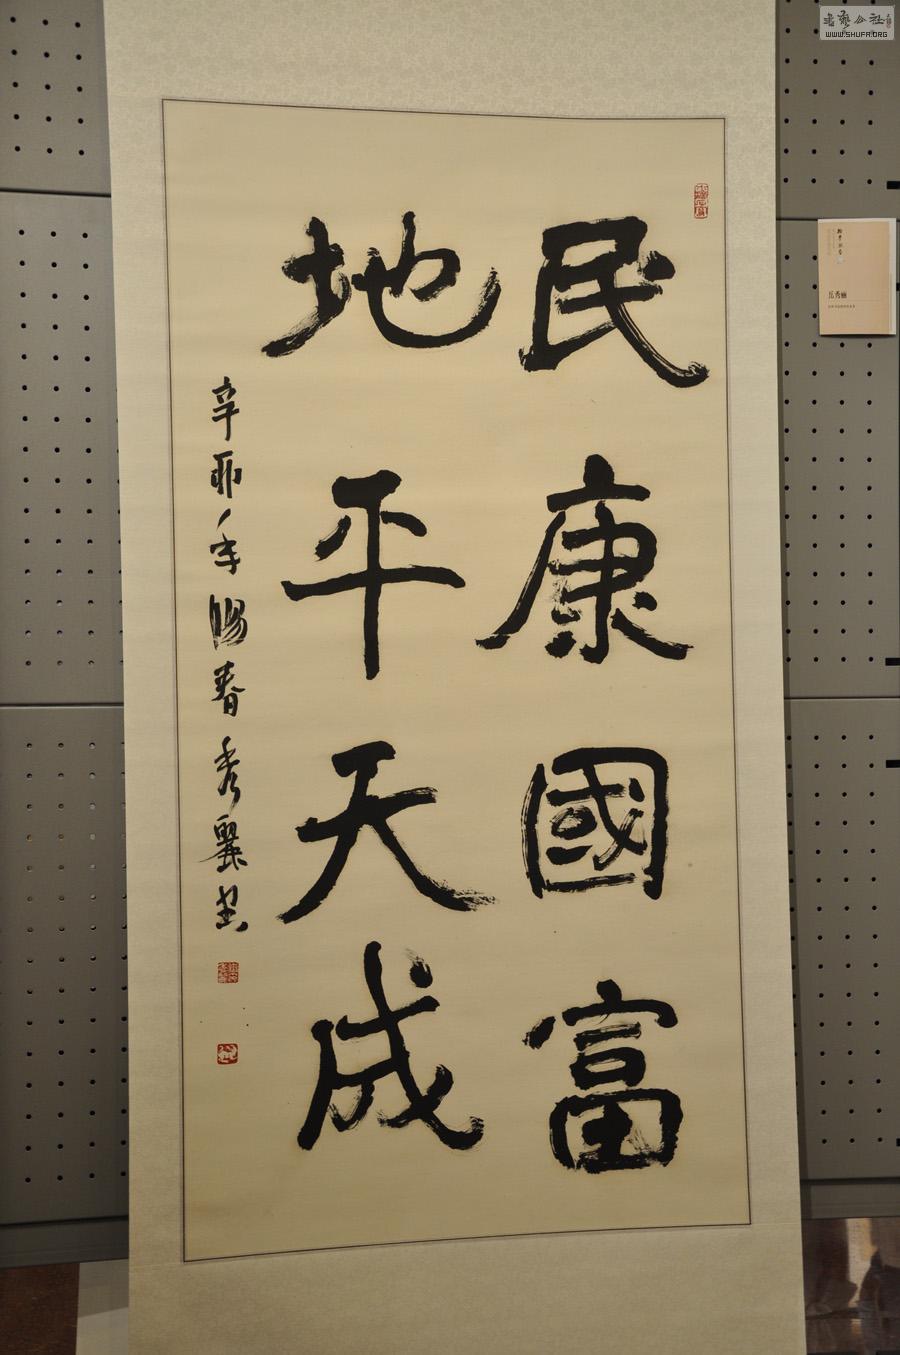 民康國富
地平天成
辛卯年陽春秀麗书
岳秀丽
書藝公社
WWW.SHUFA.ORG